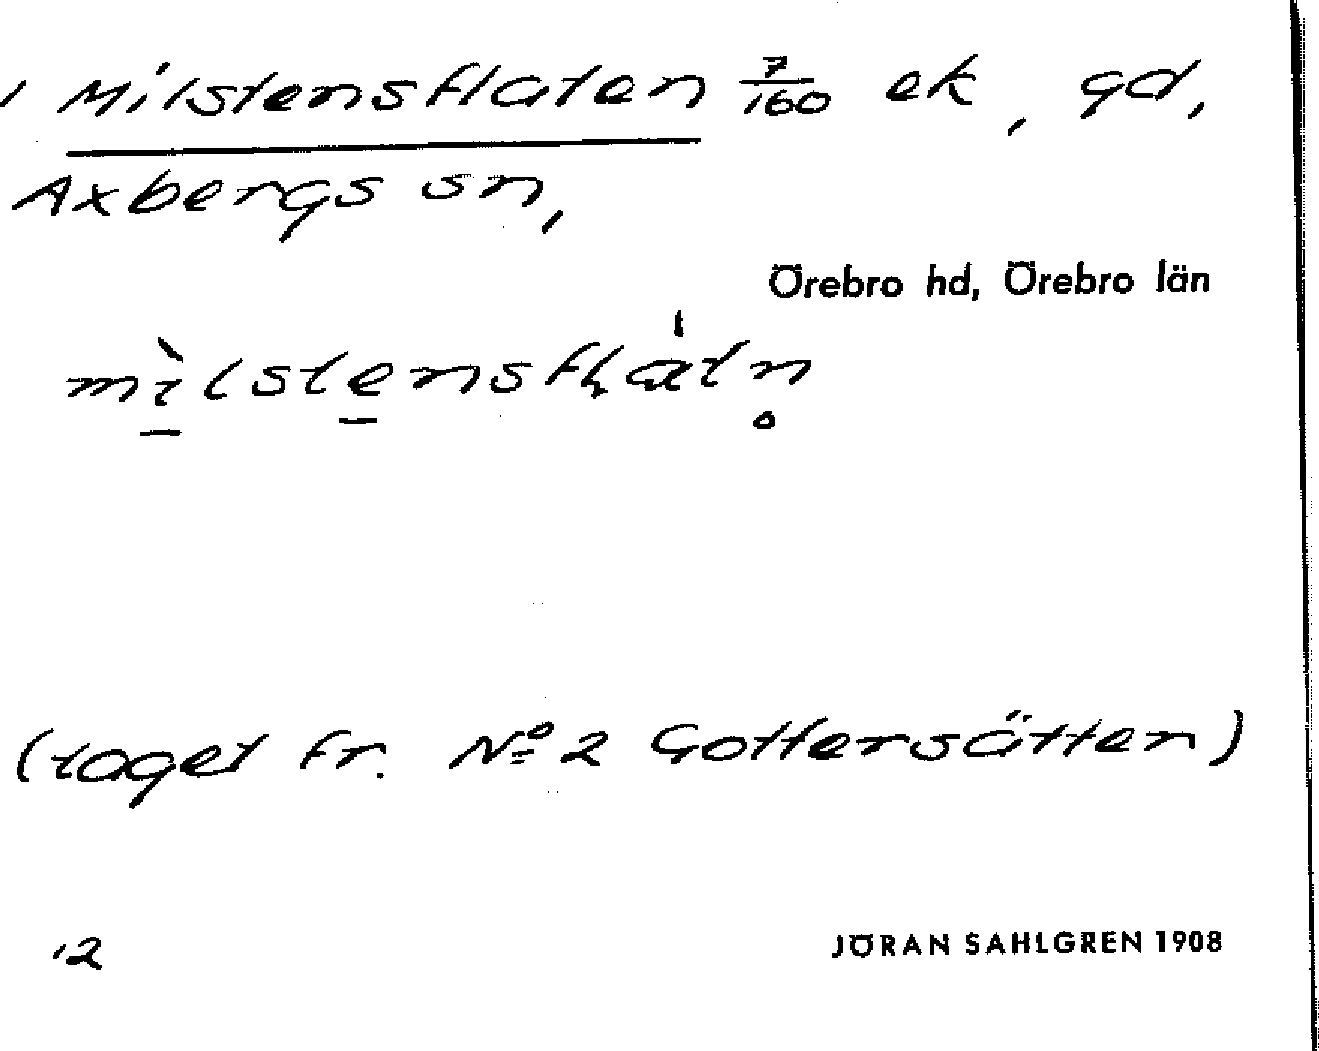 1 Milstensflaten 7/160 ek, gd,
Axbergs sn,
Örebro hd, Örebro län
mìlstensfḷátn̥
(taget fr. Nº 2 Gottersätter)
12
JÖRAN SAHLGREN 1908